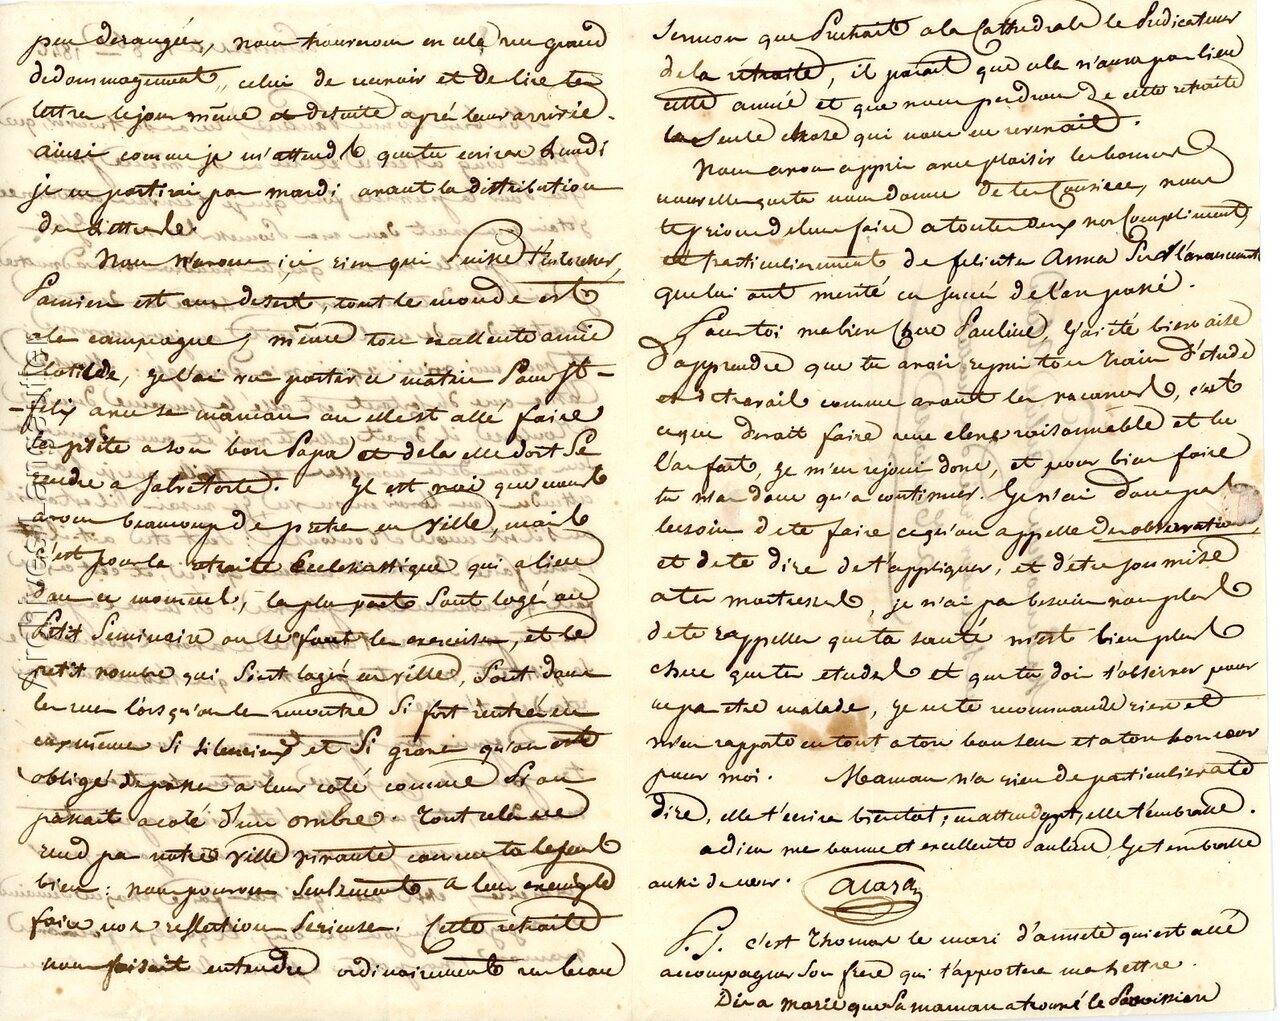 peu derangée, nous trouverons en cela un grand
dedommagement, celui de recevoir et de lire tes
lettres le jour même et desuite apré leur arrivée.
ainsi comme je m'attends que tu ecrives Lundi
je ne partirai pas mardi avant la distribution
des Lettres.
Nous n'avons ici rien qui Puisse t'intéresser,
Pamiers est un desert, tout le monde est
a la campagne, même ton excellente amie
Clotilde, je l'ai vu partir ce matin Pour St-
-felix avec sa maman ou elle est allé faire
la visite a son bon Papa et dela elle doit Se
rendre a Salvetorte. Il est vrai que nous
avons beaucoup de pretres en Ville, mais
c'est pour la retraite Ecclesiastique qui a lieu
dans ce moment, la plus part Sont logés au
Petit Seminaire ou se font les exercises, et le
petit nombre qui Sont logés en ville, Sont dans
les rues lorsqu'on les rencontre Si fort rentrés en
eux même Si Silencieux et Si graves qu'on est
obligé de passer a leur coté comme Si on
passait a coté d'un ombre. Tout cela ne
rend pas notre ville vivante comme tu le sens
bien: nous pouvons Seulement a leur exemple
faire nos reflections Serieuses. Cette retraite
nous faisait entendre ordinairement un beau
Sermon que Prechait a la Cathedrale le Predicateur
de la retraite, il parait que cela n'aura pas lieu
cette année et que nous perdrons de cette retraite
la Seule chose qui nous en revenait.
Nous avons appris avec plaisir les bonnes
nouvelles que tu nous donne de tes Cousines, nous
te prions de leur faire a toutes deux nos Compliments,
et particulierement de feliciter Anna Sur l'avancement
que lui ont merité ses succés de l'an passé.
Pour toi ma bien Chere Pauline, j'ai été bien aise
d'apprendre que tu avais repris ton train d'etude
et de travail comme avant les vacances, c'est
ce que devait faire une eleve raisonnable et tu
l'as fait, je m'en rejouis donc, et pour bien faire
tu n'as donc qu'a continuer. Je n'ai donc pas
besoin de te faire ce qu'on appelle des observations,
et de te dire de t'appliquer, et d'etre soumise
a tes maitresses, je n'ai pas besoin non plus
de te rappeller que ta santé m'est bien plus
chere que tes etudes et que tu dois t'observer pour
ne pas etre malade, je ne te recommande rien et
m'en rapporte en tout a ton bon sens et a ton bon coeur
pour moi. Maman n'a rien de particulier a te
dire, elle t'ecrira bientot; en attendant, elle t'embrasse.
adieu ma bonne et excellente Pauline Je t'embrasse
aussi de coeur.
P.S. c'est Thomas le mari d'annete qui est allé
accompagner Son frere qui t'apportera ma Lettre.
Dis a Marie que Sa maman a trouvé le Paroissien